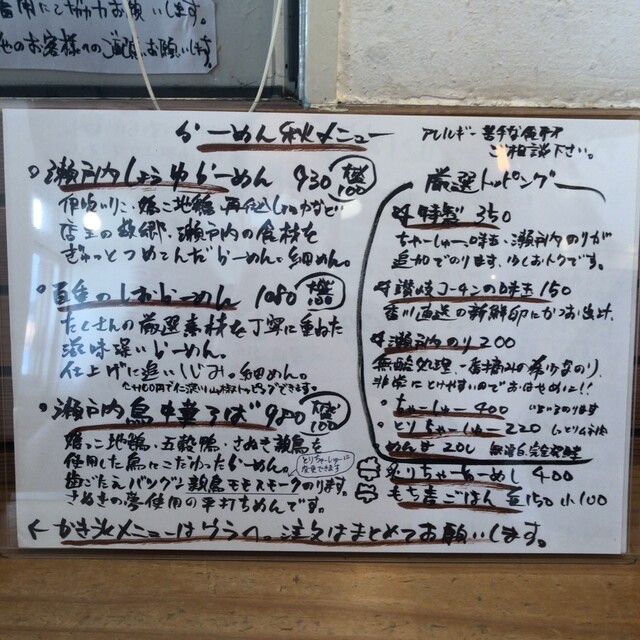 他のお客様へのご配慮お願いします
らーめん 秋メニュー
アレルギー 苦手な食材
ご相談下さい。
瀬戸内しょうゆらーめん 930 大盛100
伊吹いりこ、媛っこ地鶏、再仕込しょうゆなど
店主の故郷、瀬戸内の食材を
ぎゅっとつめこんだらーめん。細めん。
百重のしおらーめん 1080 大盛100
たくさんの厳選素材を丁寧に重ねた
滋味深いらーめん。
仕上げに追いしじみ。細めん。
瀬戸内鳥中華そば 980 大盛100
媛っこ地鶏、五穀鴨、さぬき親鳥を
使用した鳥にこだわったらーめん。
とりちゃーしゅーに
変更できます
歯ごたえバツグン親鳥モモスモークのります。
さぬきの夢使用の平打ちめんです。
厳選トッピング
特製 350
ちゃーしゅー、味玉、瀬戸内のりが
追加でのります、少しおトクです。
讃岐コーチンの味玉 150
香川直送の新鮮卵にかつお出汁、
瀬戸内のり 200
無酸処理、一番摘みの希少なのり、
非常にとけやすいのでお早めに!!
ちゃーしゅー 400
とりちゃーしゅー 220
めんま 200 無漂白、完全発酵
炙りちゃーしゅーめし 400
もち麦ごはん 並150 小100
← かき氷メニューはうらへ。注文はまとめてお願いします。